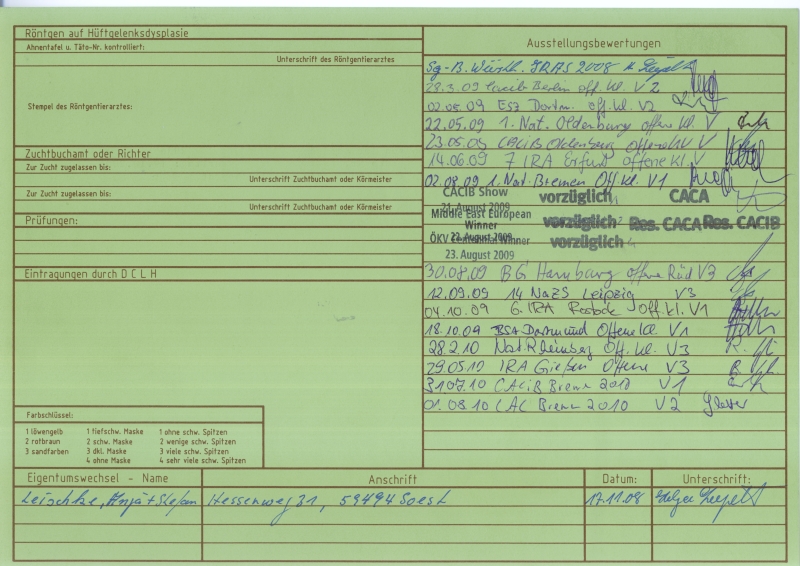 Röntgen auf Hüftgelenksdysplasie
Ahnentafel u. Täto-Nr. kontrolliert:
Unterschrift des Röntgentierarztes
Stempel des Röntgentierarztes:
Zuchtbuchamt oder Richter
Zur Zucht zugelassen bis:
Unterschrift Zuchtbuchamt oder Körmeister
Zur Zucht zugelassen bis:
Unterschrift Zuchtbuchamt oder Körmeister
Prüfungen:
Eintragungen durch DCLH
Farbschlüssel:
1 löwengelb 1 tiefschw. Maske 1 ohne schw. Spitzen
2 rotbraun 2 schw. Maske 2 wenige schw. Spitzen
3 sandfarben 3 dkl. Maske 3 viele schw. Spitzen
4 ohne Maske 4 sehr viele schw. Spitzen
Ausstellungsbewertungen
IRAS 2008
28.3.09 Cacib Berlin off. Kl. V2
02.05.09 Dortm. off. kl. V2
22.05.09 1. Nat. Oldenburg offene Kl. V
23.05.09 CACIB Oldenburg Offene Kl V
14.06.09 7 IRA Erfurt offene Kl. V
02.08.09 1. Nat. Bremen Off. Kl. V1
CACIB Show vorzüglich 1 CACA
21. August 2009
Middle East European vorzüglich 2 Res. CACA Res. CACIB
Winner
22. August 2009
ÖKV Winner vorzüglich 4
23. August 2009
30.08.09 BG Hamburg offene Rüd V3
12.09.09 14 NaZS Leipzig V3
04.10.09 6. IRA Rostock Off. kl. V1
18.10.09 BSA Dortmund Offene Kl. V1
28.2.10 Nat. Rheinberg Off. kl. V3
29.05.10 IRA Gießen Offene V3
31.07.10 CACIB Bremen 2010 V1
01.08.10 CAC Bremen 2010 V2
Eigentumswechsel - Name Anschrift Datum: Unterschrift:
Leischke, Anja + Stefan Hessenweg 31, 59494 Soest 17.11.08